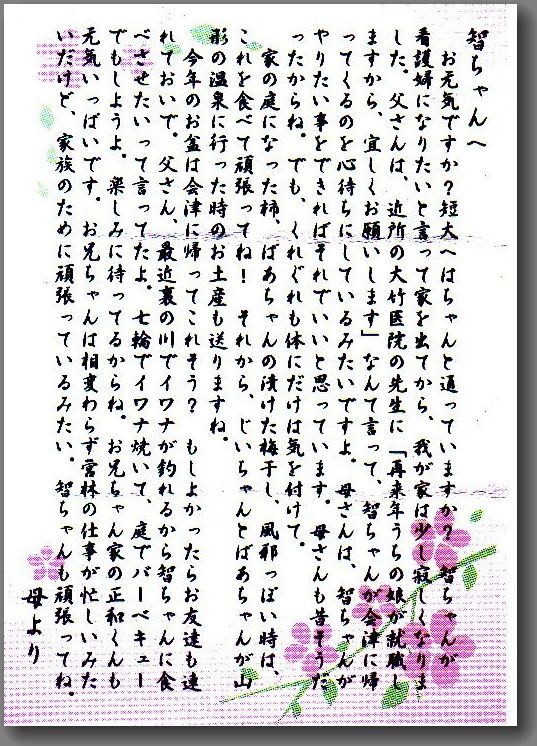 智ちゃんへ
　お元気ですか？短大へはちゃんと通っていますか？　智ちゃんが
看護婦になりたいと言って家を出てから、我が家は少し寂しくなりま
した。父さんは、近所の大竹医院の先生に「再来年うちの娘が就職し
ますから、宜しくお願いします」なんて言って、智ちゃんが会津に帰
ってくるのを心待ちにしているみたいですよ。母さんは、智ちゃんが
やりたい事をできればそれでいいと思っています。母さんも昔そうだ
ったからね。でも、くれぐれも体にだけは気を付けて。
　家の庭になった柿、ばあちゃんの漬けた梅干し、風邪っぽい時は、
これを食べて頑張ってね！　それから、じいちゃんとばあちゃんが山
形の温泉に行った時のお土産も送りますね。
　今年のお盆は会津に帰ってこれそう？　もしよかったらお友達も連
れておいで。父さん、最近裏の川でイワナが釣れるから智ちゃんに食
べさせたいって言ってたよ。七輪でイワナ焼いて、庭でバーベキュー
でもしようよ。楽しみに待ってるからね。お兄ちゃん家の正和くんも
元気いっぱいです。お兄ちゃんは相変わらず営林の仕事が忙しいみた
いだけど、家族のために頑張っているみたい。智ちゃんも頑張ってね。
母より